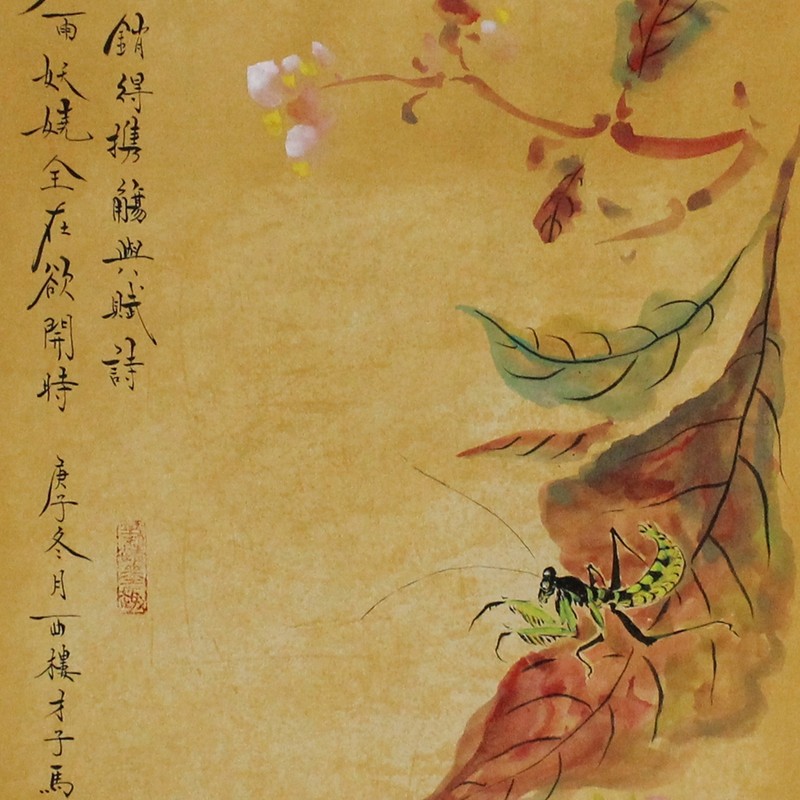 銷得携觴與賦詩
雨妖嬈全在欲開時 庚子冬月西樓才子馬